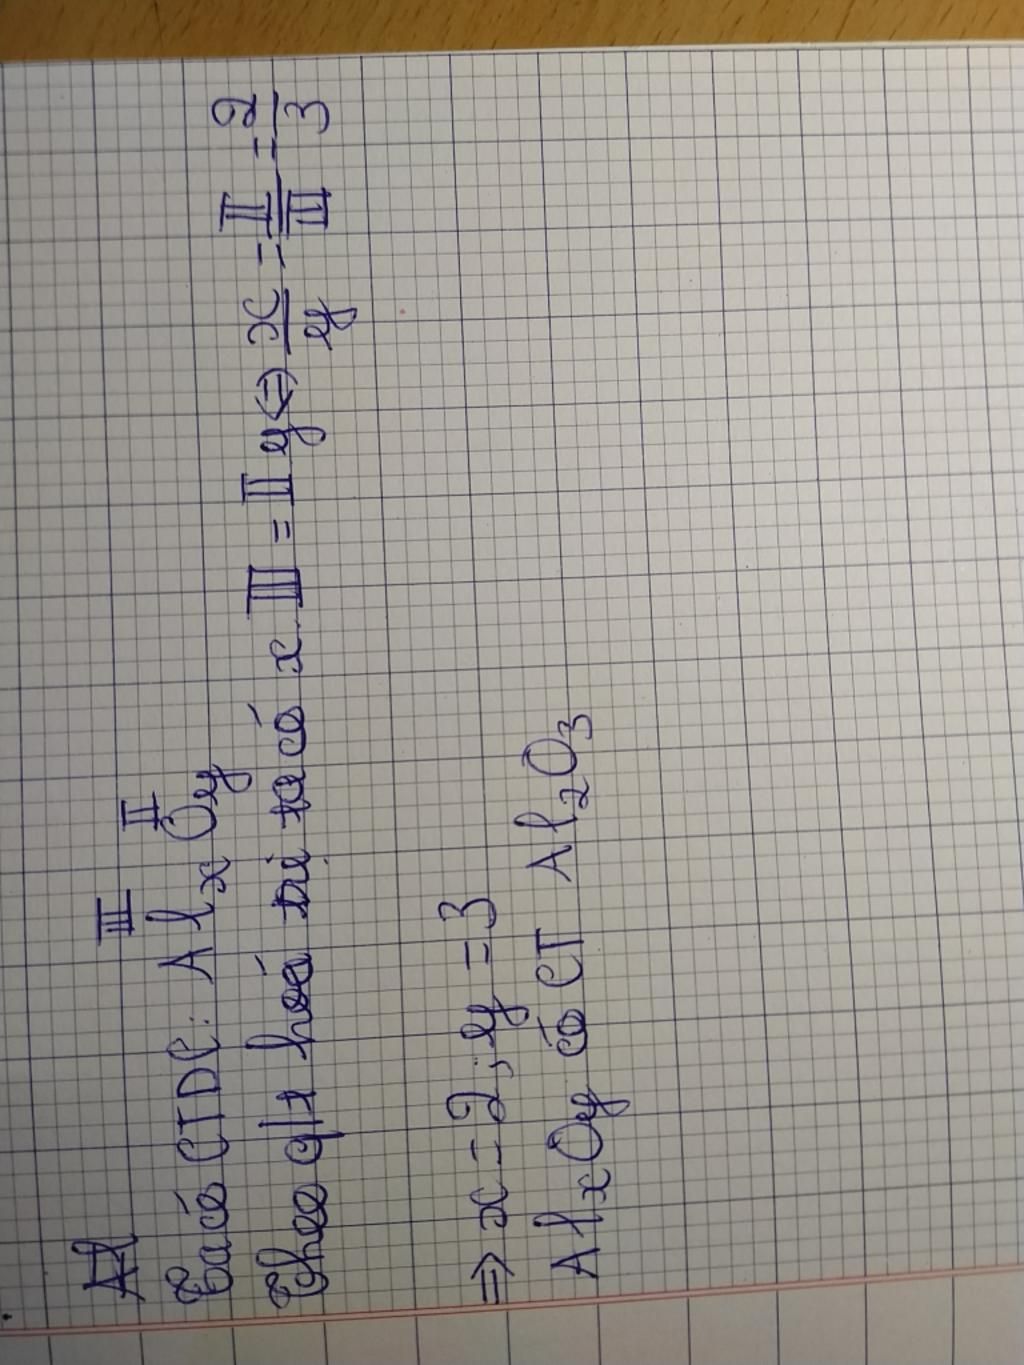 III II
Ta có CTDC: AlxOy
Theo q/t hoá trị ta có x. III = II y ⇔ x/y = II/III = 2/3
⇒ x = 2; y = 3
AlxOy có CT Al2O3